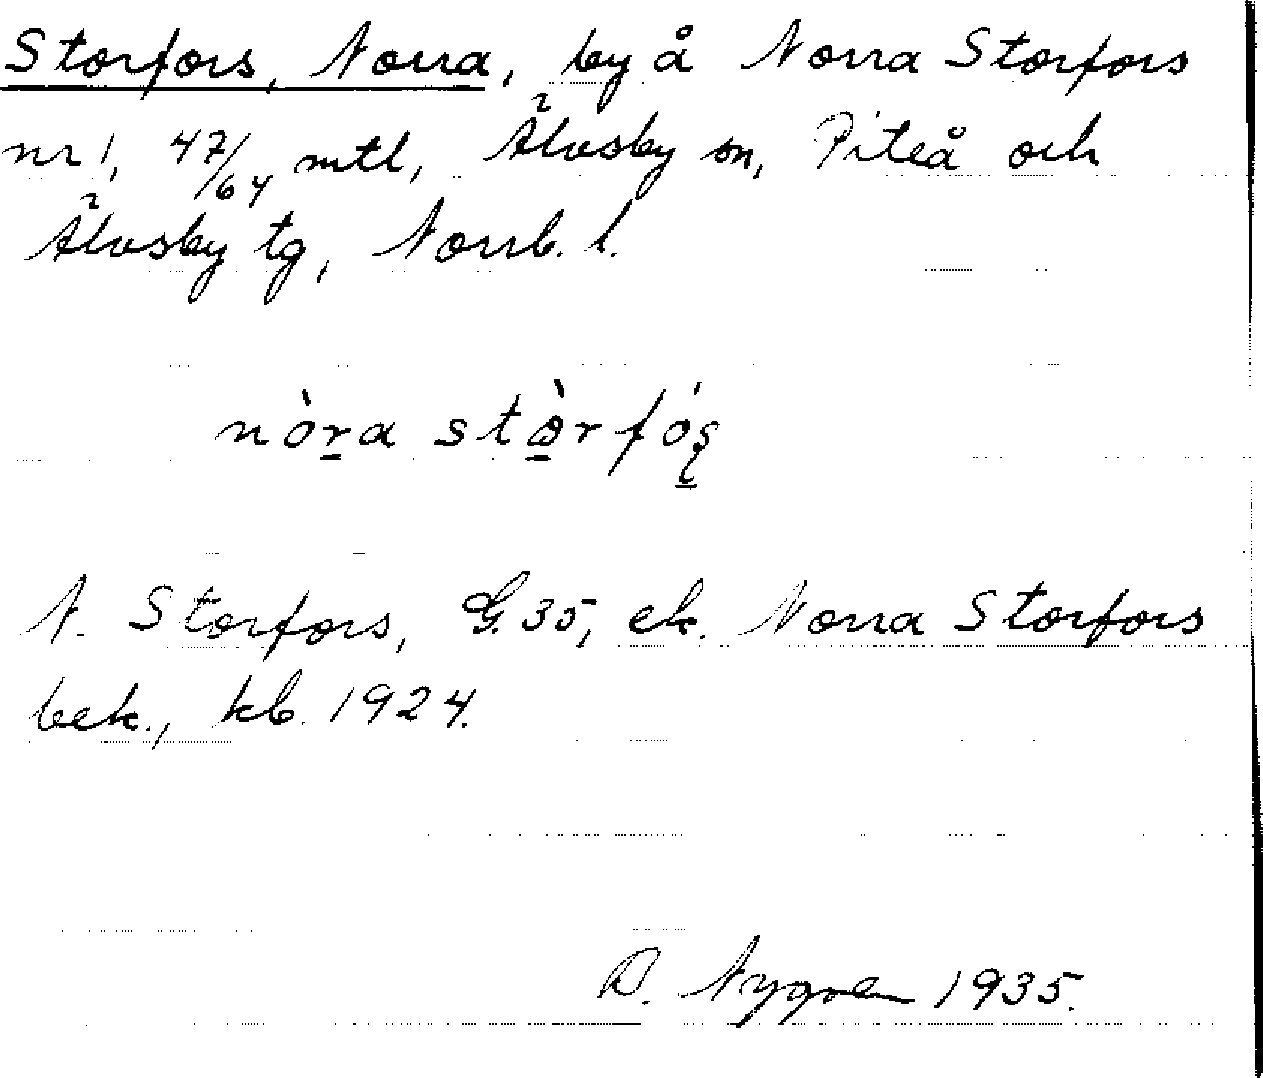 Storfors, Norra, by å Norra Storfors
nr 1, 47/64 mtl, Älvsby sn, Piteå och
Älvsby tg, Norrb. l.
nòra stòrfós
N. Storfors, G.35, ek. Norra Storfors
bek., kb. 1924.
D. Nygren 1935.